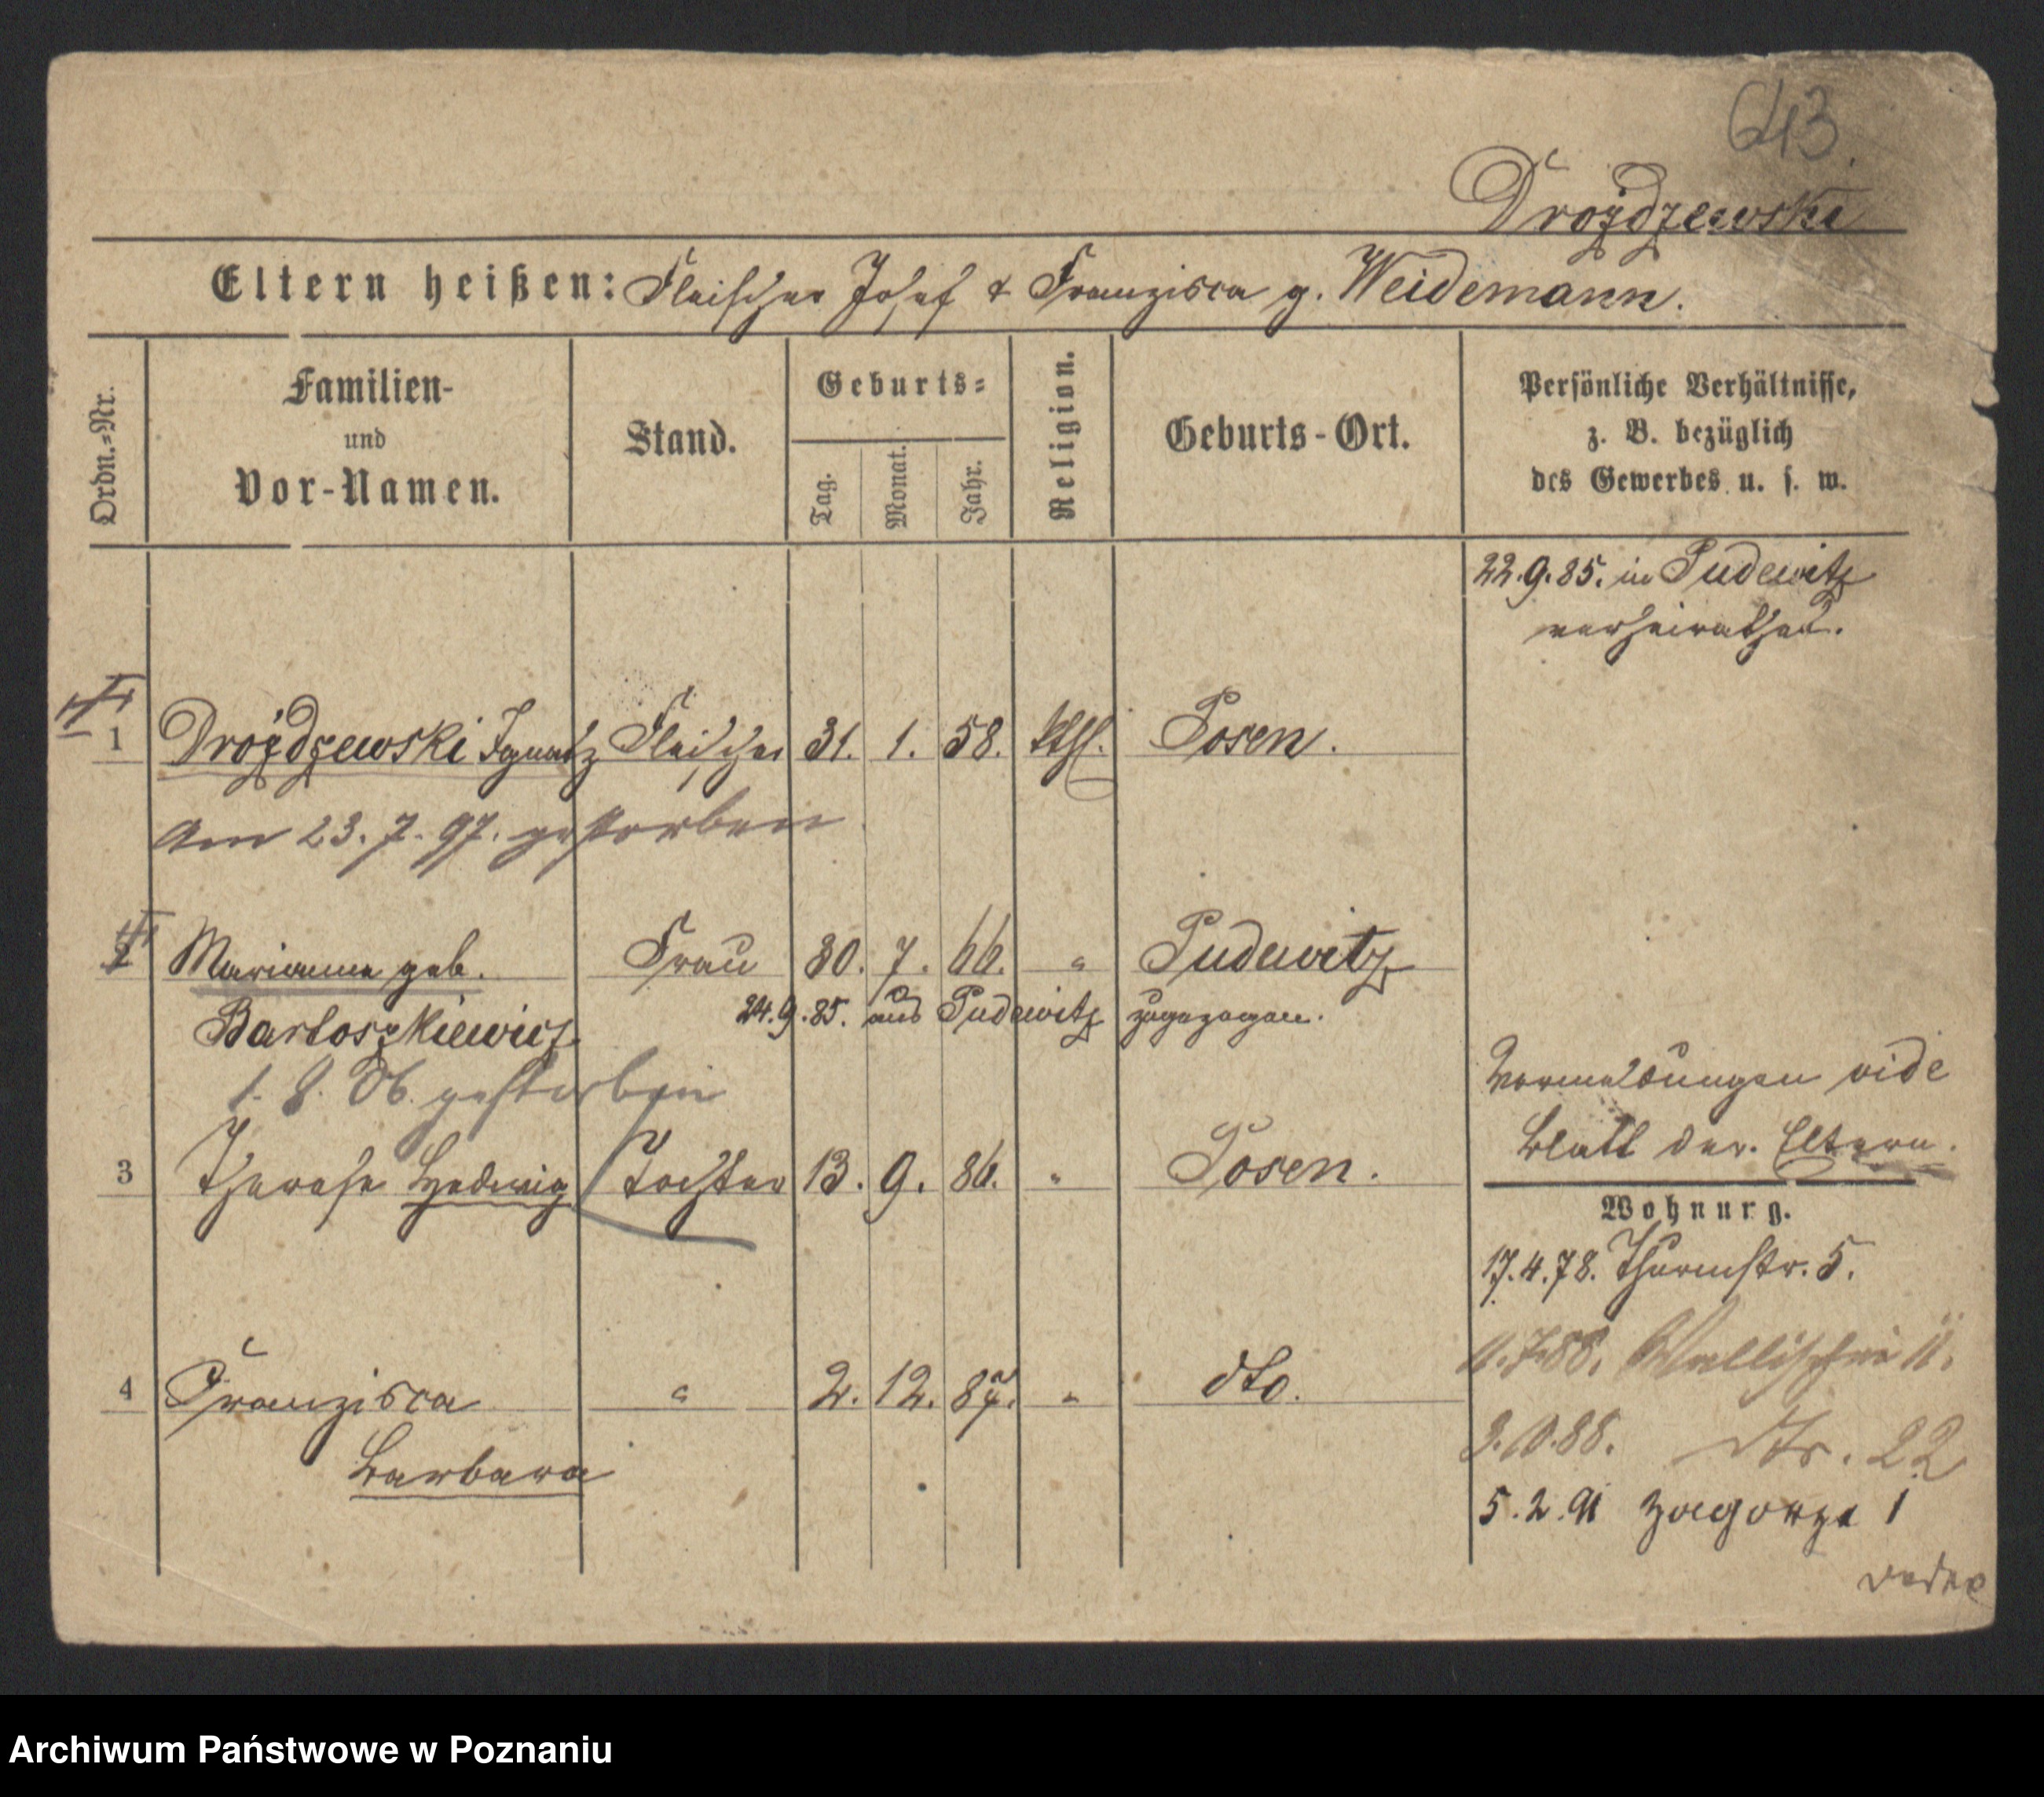 643.
Drożdżewski
Eltern heißen: Fleischer Josef & Franzisca g. Weidemann.
Ordn.-Nr.
Familien-
und
Vor-Namen.
Stand.
Geburts-
Tag.
Monat.
Jahr.
Religion.
Geburts-Ort.
Persönliche Verhältnisse,
z. B. bezüglich
des Gewerbes u. s. w.
22.9.85. in Pudewitz
verheirathet.
1 Drożdżewski Ignatz Fleischer 31. 1. 58. kthl. Posen.
Am 23.7.97. gestorben
2 Marianna geb. Frau 30. 7. 66. " Pudewitz
Bartoszkiewicz 24.9.85. aus Pudewitz zugezogen.
1. 8. 06. gestorben
Vermeldungen vide
Blatt der Eltern.
3 Therese Hedwig Tochter 13. 9. 86. " Posen.
Wohnung.
17.4.78. Thurmstr. 5.
11.7.88. Wallischei 11.
4 Franzisca " 2. 12. 87. " dto.
Barbara
3.10.88. dto. 22
5.2.91 Zagorze 1